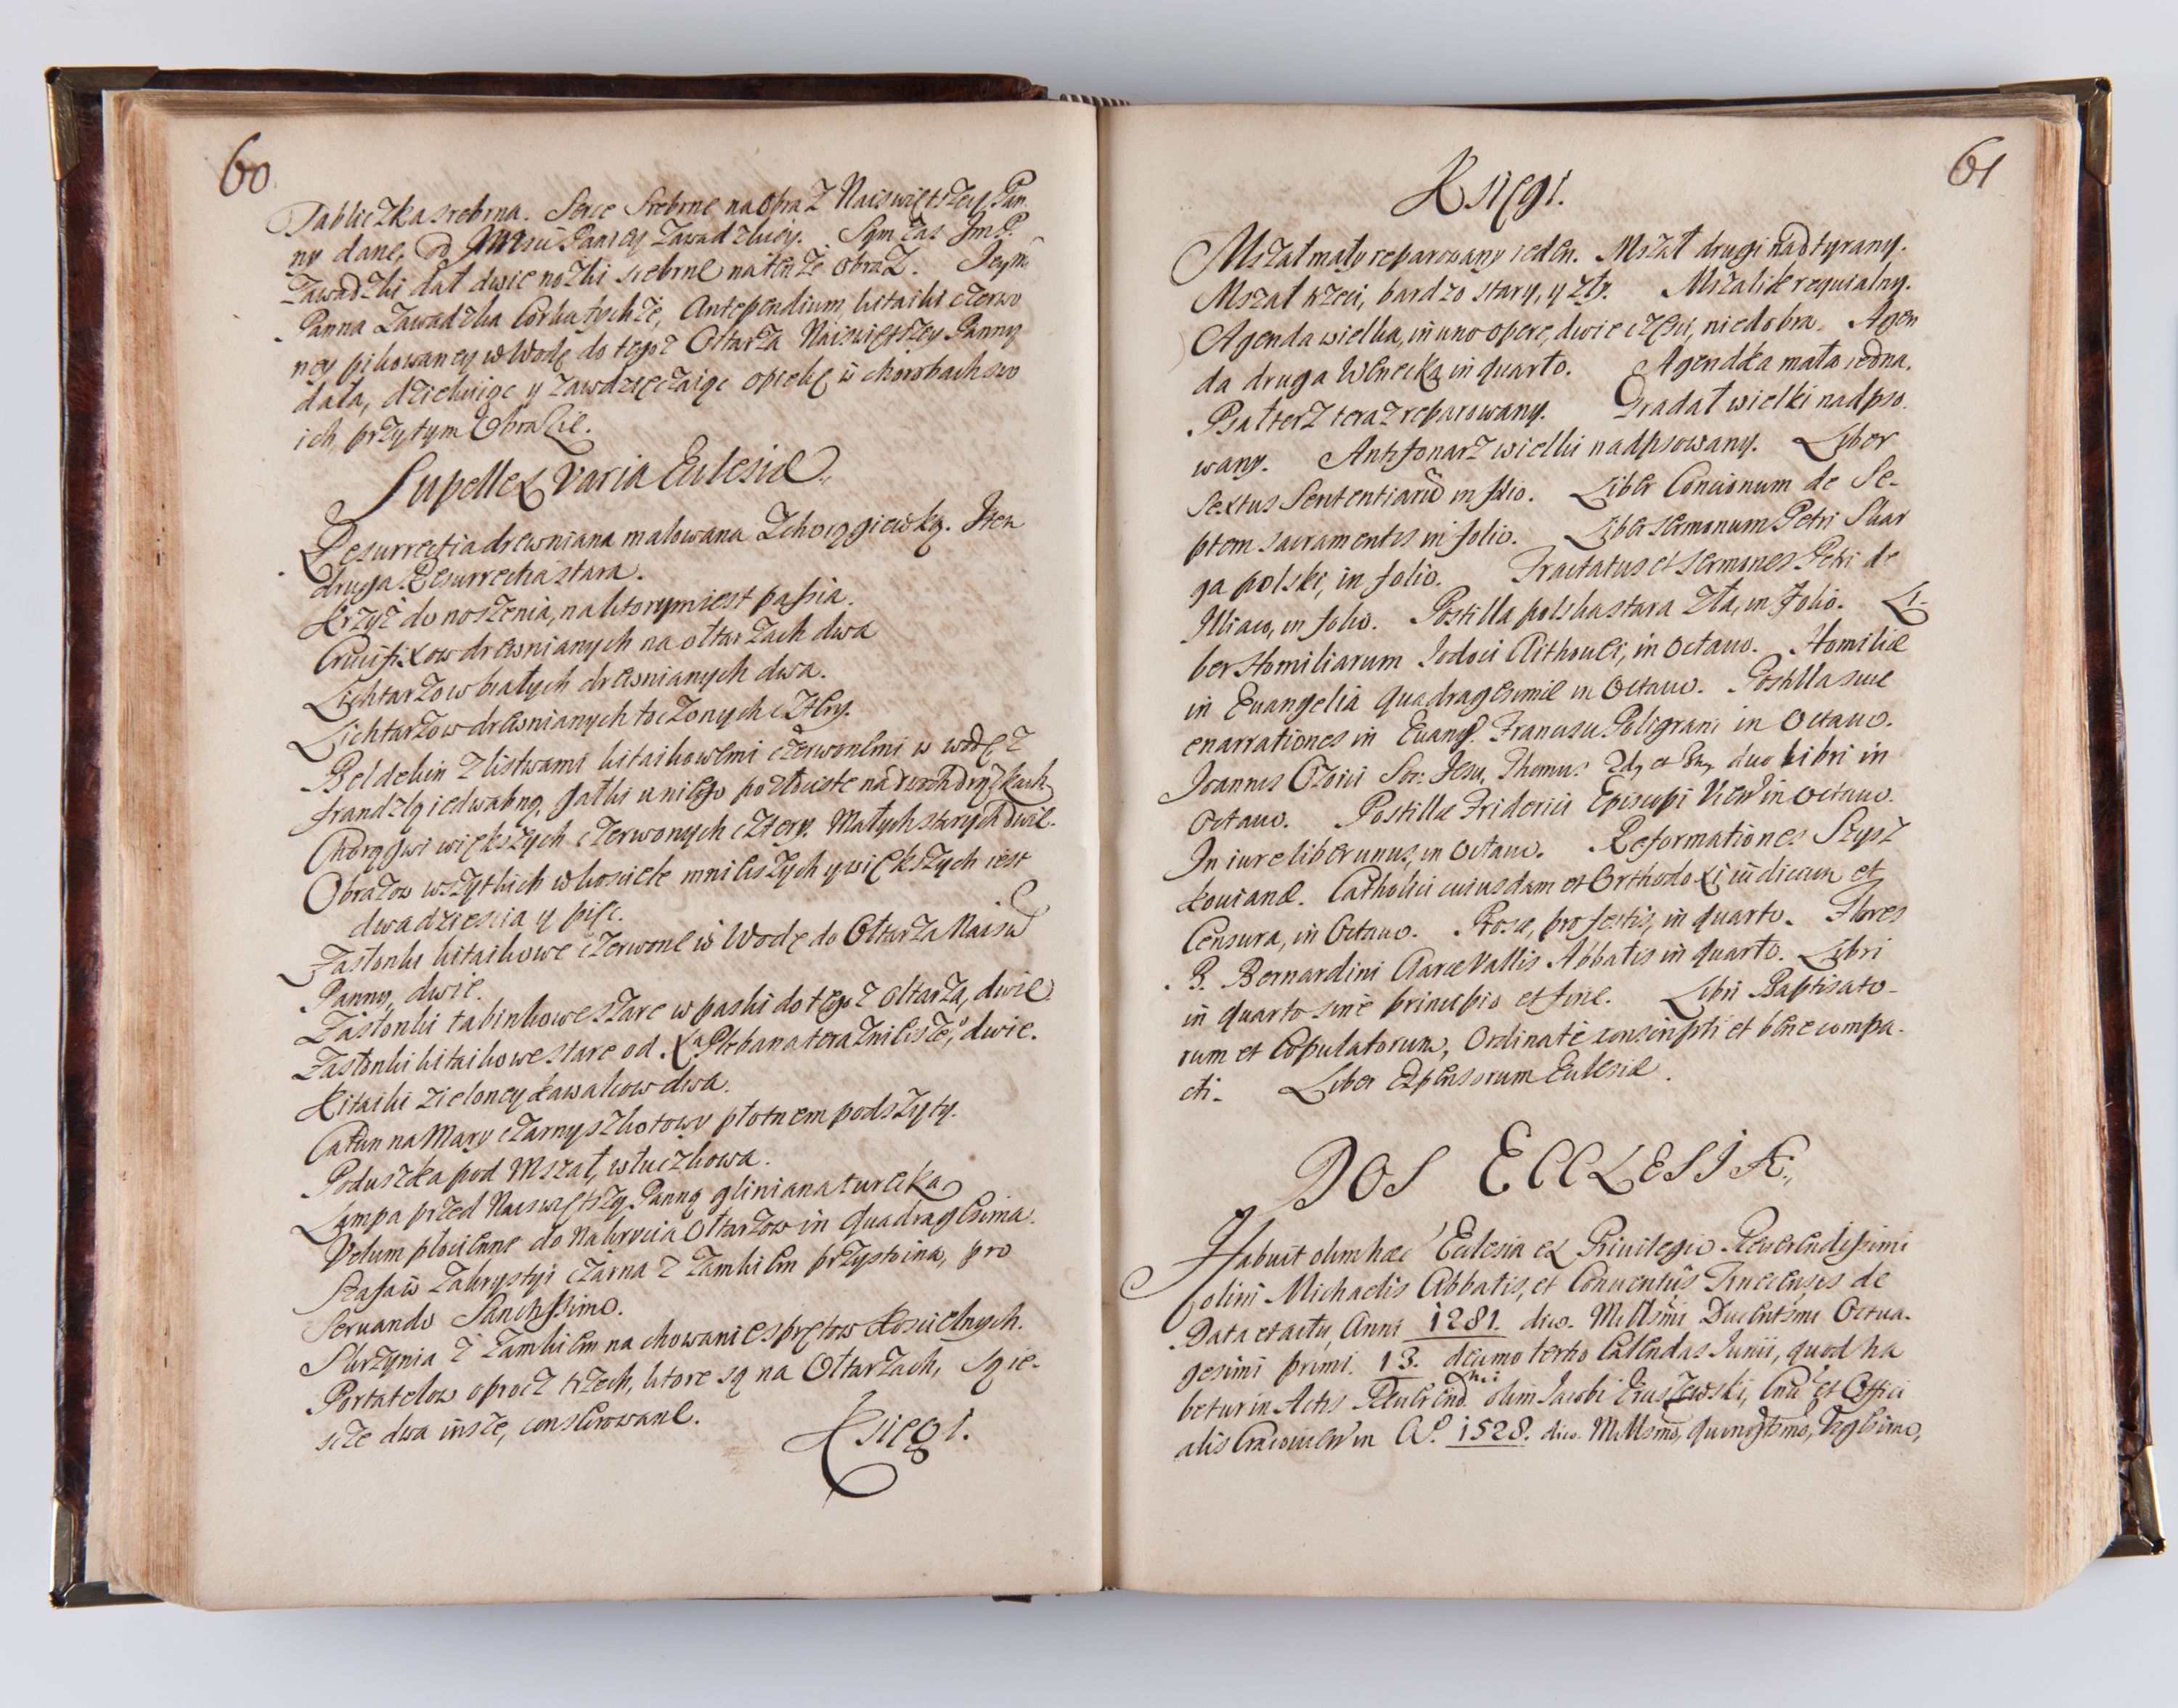 60
Tabliczka srebrna. Serce srebrne na obraz Naiswiętszey Pan
ny dane, od Zawadzkiey.
Zawadzki dał dwie nożki srebrne na tenże obraz.
Panna Zawadzka Corka tychże, Antependium kitaiki czerwo
ney pikowaney w Wodę do tegoż Ołtarza Naiswiętszey Panny
dała, dziekuiąc y zawdzięczaiąc opiekę w chorobach swo
ich, przy tym Obrazie.
Supellex varia Ecclesiæ.
Resurrectia drewniana malowana z chorągiewką. Item
druga Resurrectia stara.
Krzyż do noszenia, na ktorym iest passia.
Crucifixow drewnianych na ołtarzach dwa
Lichtarzow białych drewnianych dwa.
Lichtarzow drewnianych toczonych cztery.
Beldekin z listwami kitaikowemi czerwonemi w wodę z
frandzlą iedwabną, gałki u niego pozłociste na dwoch drążkach
Chorągwi większych czerwonych cztery. Małych starych dwie.
Obrazow wszytkich w kosciele mnieiszych y większych iest
dwadziescia y pięc.
Zasłonki kitaikowe czerwone w Wodę do Ołtarza Naisw
Panny, dwie.
Zasłonki tabinkowe stare w paski do tegoż ołtarza, dwie
Zasłonki kitaikowe stare od Xa Plebana teraznieisze, dwie.
Kitaiki zieloney kawałkow dwa.
Całun na Mary czarny szkotowy płotnem podszyty.
Poduszka pod Mszał, włuczkowa.
Lampa przed Naiswiętszą Panną gliniana turecka
Velum płocienne do nakrycia Ołtarzow in Quadragesima.
Szafa w Zakrystyi czarna z zamkiem przystoina, pro
seruando Sanctissimo.
Skrzynia z zamkiem na chowanie sprętow koscielnych.
Portatelow oprocz trzech, ktore są na Ołtarzach, są ie-
szcze dwa insze, consecrowane.
Ksiegi.
61
Księgi.
Mszał mały reparowany ieden. Mszał drugi nadtyrany.
Mszał trzeci, bardzo stary, y zły. Mszalik requialny.
Agenda wielka, in uno opere, dwie części, niedobra. Agen
da druga Wenecka in quarto. Agendka mała iedna.
Psałterz teraz reparowany. Gradał wielki nadpso.
wany. Antyfonarz wielki nadpsowany. Liber
Sextus Sententiarū in folio. Liber Concionum de Se-
ptem sacramentis in folio. Liber sermonum Petri Skar
ga polski, in folio. Tractatus et sermones Petri de
Illiaco, in folio. Postilla polska stara zła, in folio. Li-
ber Homiliarum Iodoci Clithouei, in octauo. Homiliæ
in Euangelia quadragesimæ in Octauo. Postilla siue
enarrationes in Euang. Francisci Poligrani in Octauo.
Ioannis Osorii Soc: Iesu, Thomus 2d, et duo Libri in
Octauo. Postillæ Friderici Episcopi in octauo.
In iure liber unus, in octauo. Reformationes Szysz
kouianæ. Catholici cuiusdam et Orthodoxi iudicium et
Censura, in Octauo. Prosæ, pro festis, in quarto. Flores
B. Bernardini Claræ Vallis Abbatis in quarto. Libri
in quarto sine principio et fine. Libri Baptisato-
rum et Copulatorum, Ordinate conscripti et bene compa-
cti. Liber Expensorum Ecclesiæ.
DOS ECCLESIÆ.
Habuit olim hæc Ecclesia ex Priuilegio Reuerendissimi
olim Michaelis Abbatis, et Conuentus Tinecensis de
Data et actu, Anni 1281. dico. Millsimi Ducentsimi Octua-
gesimi primi. 13. decimo tertio Calendas Iunii, quod ha
betur in Actis Reuerend. olim Iacobi Eruszewski, Cnci et Offici
alis Cracouien in Ao. 1528. dico. Millsmo, quingtsmo, Vigesimo,